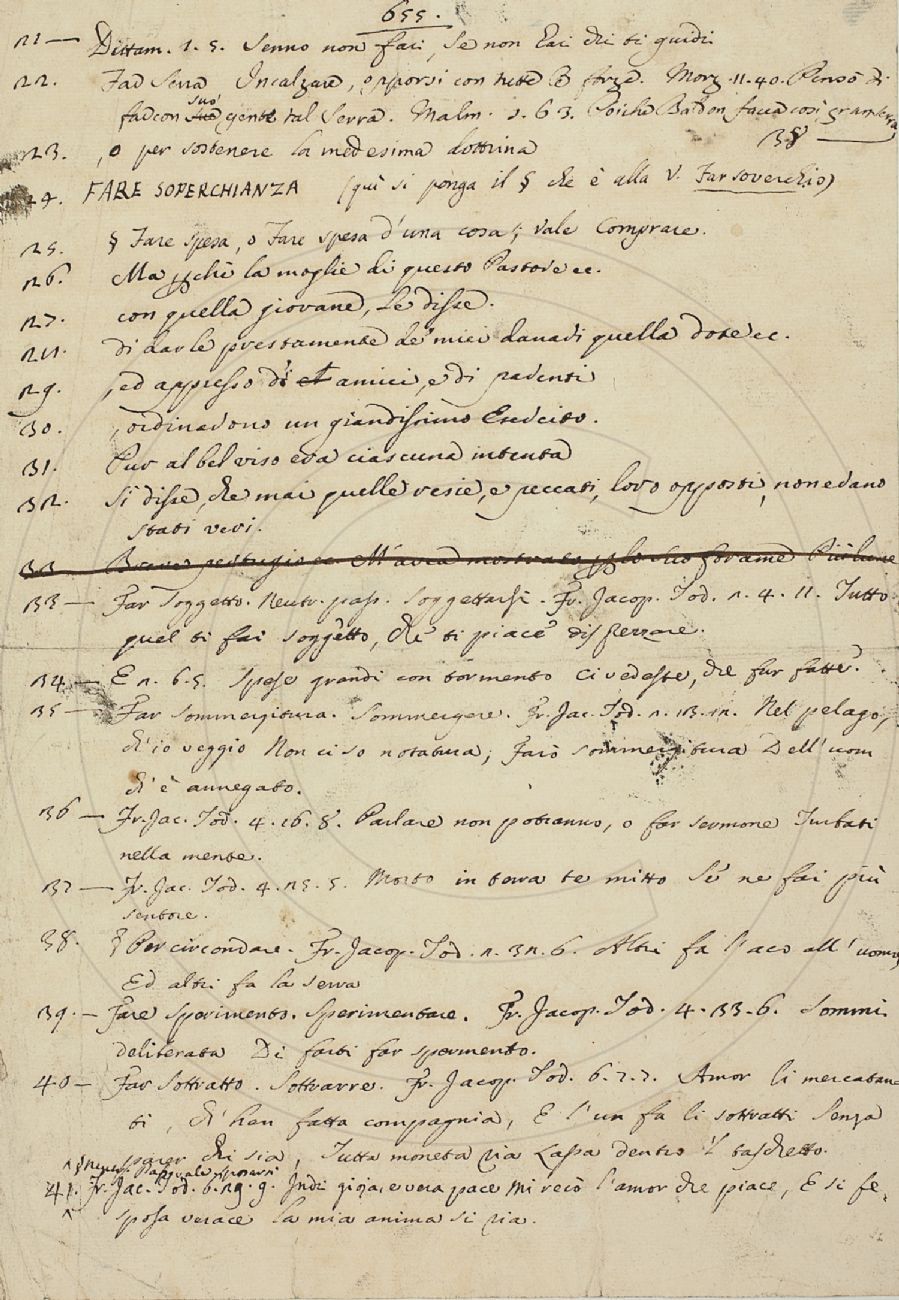 655.
21 — Dittam. 1. 5. Senno non fai, se non hai chi ti guidi
22. Far Serra Incalzare, opporsi con tutte le forze. Morg. 11. 40. Pensò di
far con suo gente tal Serra. Malm. 1. 63. Poichè Baldon facea così gran serra
38 —
23. , o per sostenere la medesima dottrina
24. FARE SOPERCHIANZA (quì si ponga il § che è alla V. Far soverchio)
25. § Fare spesa, o Fare spesa d'una cosa; vale Comprare.
26. Ma perchè la moglie di questo Pastore ec.
27. con quella giovane, le disse.
28. di darle prestamente de' miei danari quella dote ec.
29. , ed appresso di amici, e di parenti
30. , ordinarono un grandissimo Esercito.
31. Pur al bel viso era ciascuna intenta
32. Si disse, che mai quelle resie, e peccati, loro opposti, non erano
stati veri.
33 Breve pertugio ec. M'avea mostrato per lo suo forame Più lune
33 — Far Soggetto. Neutr. pass. Soggettarsi. Fr. Jacop. Tod. 2. 4. 11. Tutto
quel ti fai soggetto, che ti piace disserrare.
34 — E 2. 6. 5. Spese grandi con tormento Ci vedeste, che fur fatte.
35 — Far sommergitura. Sommergere. Fr. Jac. Tod. Nel pelago,
ch'io veggio Non ci so notatura; Farò sommergitura Dell'uom
ch'è annegato.
36 — Fr. Jac. Tod. 4. 16. 8. Parlare non potranno, o far sermone Turbati
nella mente.
37 — Fr. Jac. Tod. 4. 25. 5. Morto in terra te mitto Se ne fai più
sentore.
38. § Per circondare. Fr. Jacop. Tod. 2. 32. 6. Altri fa l'aco all'uomo,
Ed altri fa la serra
39. — Fare sperimento. Sperimentare. Fr. Jacop. Tod. 4. 33. 6. Sommi
deliterata Di farti far sperimento.
40 — Far Sottratto. Sottrarre. Fr. Jacop. Tod. 6. 7. 7. Amor li mercatan
ti, ch'han fatta compagnia, E l'un fa li sottratti Senza
parer chi sia, Tutta moneta ria Lassa dentro 'l taschetto.
§ Neutr. Pass. vale sposarsi
41. Fr. Jac. Tod. 6. 29. 9. Indi gioja, e vera pace Mi recò l'amor che piace, E si fe,
sposa verace la mia anima si ria.